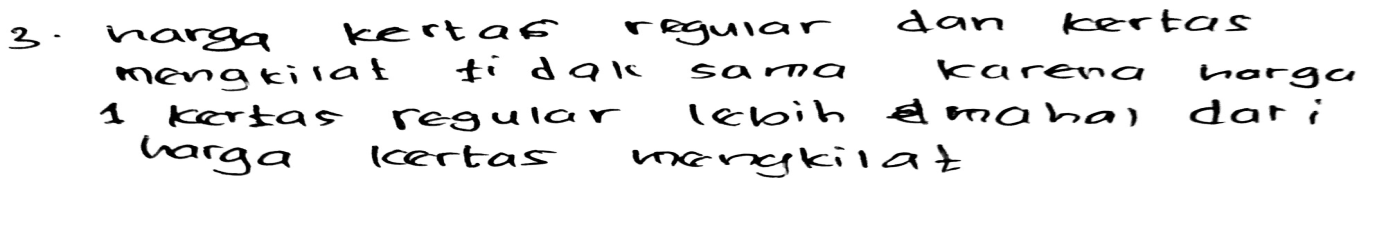 3. harga kertas regular dan kertas
mengkilat tidak sama karena harga
1 kertas regular lebih mahal dari
harga kertas mengkilat